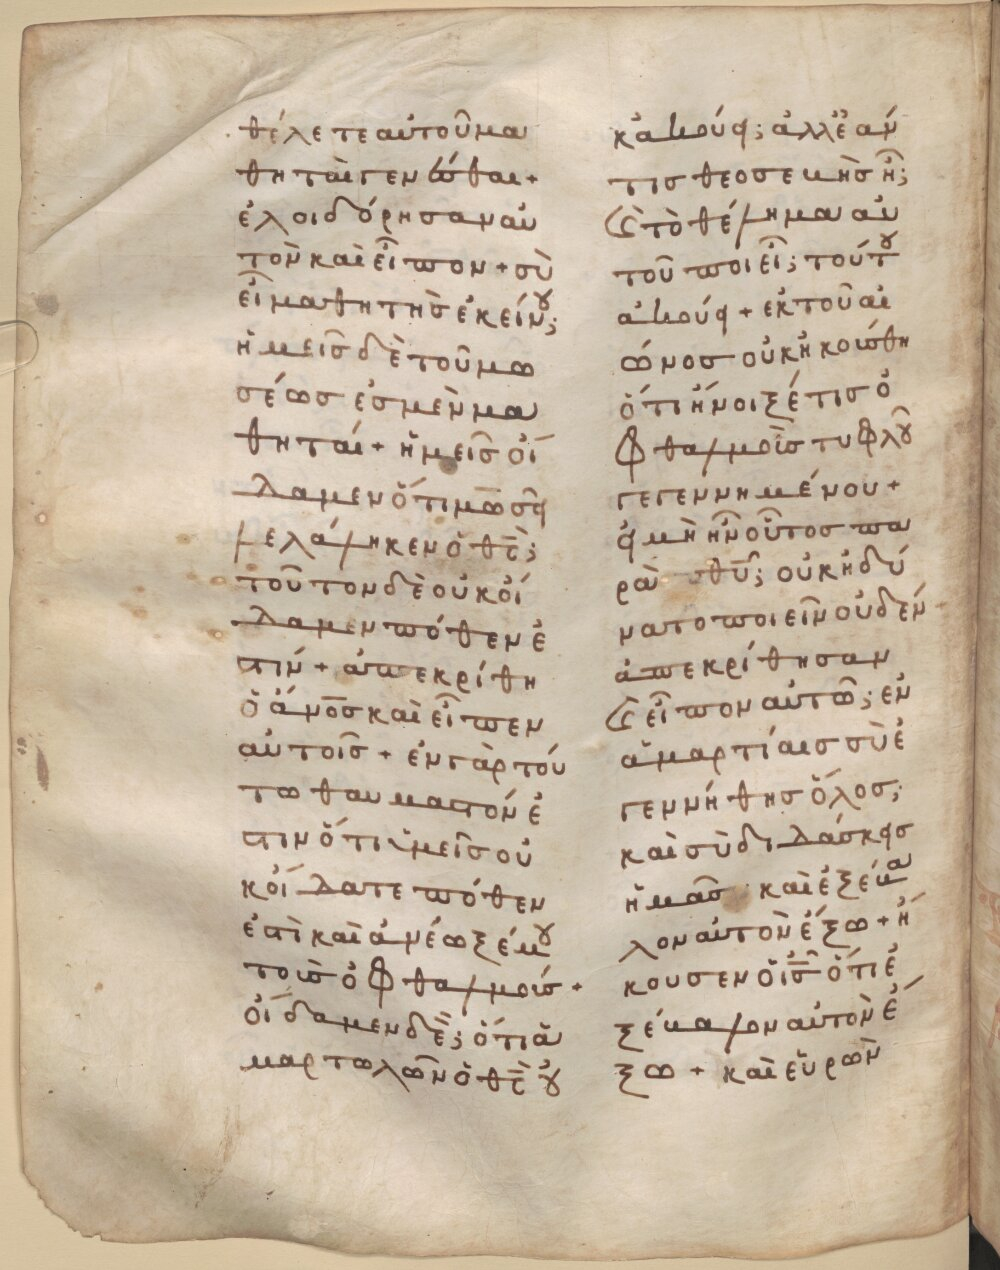 θέλετε αὐτοῦ μα
θηταὶ γενέσθαι +
ἐλοιδόρησαν αὐ
τὸν καὶ εἶπον + σὺ
εἶ μαθητὴς ἐκείνȣ;
ἡμεῖς δὲ τοῦ μω
σέως ἐσμὲν μα
θηταί + ἡμεῖς οἴ
δαμεν ὅτι μωσῇ
λελάληκεν ὁ θς̅;
τοῦτον δὲ οὐκ οἴ
δαμεν πόθεν ἐ
στίν + ἀπεκρίθη
ὁ ἄνο̅σ καὶ εἶπεν
αὐτοῖς + ἐν γὰρ τού
τω θαυμαστόν ἐ
στιν ὅτι ὑμεῖς οὐ
κ οἴδατε πόθεν
ἐστὶ καὶ ἀνέωξέ μȣ
τοὺς ὀφθαλμούς +
οἴδαμεν δὲ; ὅτι ἁ
μαρτωλῶν ὁ θς̅ οὐ
κ ἀκούει; ἀλλ' ἐάν
τις θεοσεβὴς ᾖ;
ϗ τὸ θέλημα αὐ
τοῦ ποιεῖ; τούτȣ
ἀκούει + ἐκ τοῦ αἰ
ῶνος οὐκ ἠκούσθη
ὅτι ἤνοιξέ τις ὀ
φθαλμοὺς τυφλοῦ
γεγεννημένου +
εἰ μὴ ἦν οὗτος πα
ρὰ θυ̅; οὐκ ἠδύ
νατο ποιεῖν οὐδέν
ἀπεκρίθησαν
ϗ εἶπον αὐτῶ; ἐν
ἁμαρτίαις σὺ ἐ
γεννήθης ὅλος;
καὶ σὺ διδάσκεις
ἡμᾶς καὶ ἐξέβα
λον αὐτὸν ἔξω + ἤ
κουσεν ὁ ις̅ ὅτι ἐ
ξέβαλον αὐτὸν ἔ
ξω + καὶ εὑρὼν